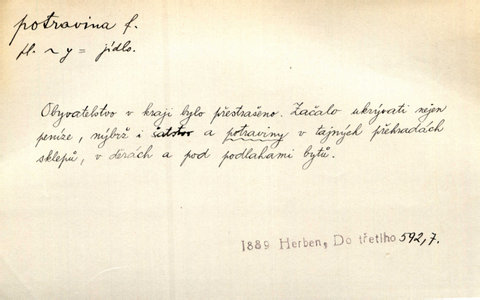 potravina f.
pl. ~ y = jídlo.
Obyvatelstvo v kraji bylo přestrašeno. Začalo ukrývati nejen
peníze, nýbrž i šatstvo a potraviny v tajných přehradách
sklepů, v děrách a pod podlahami bytů.
1889 Herben, Do třetího 592,7.